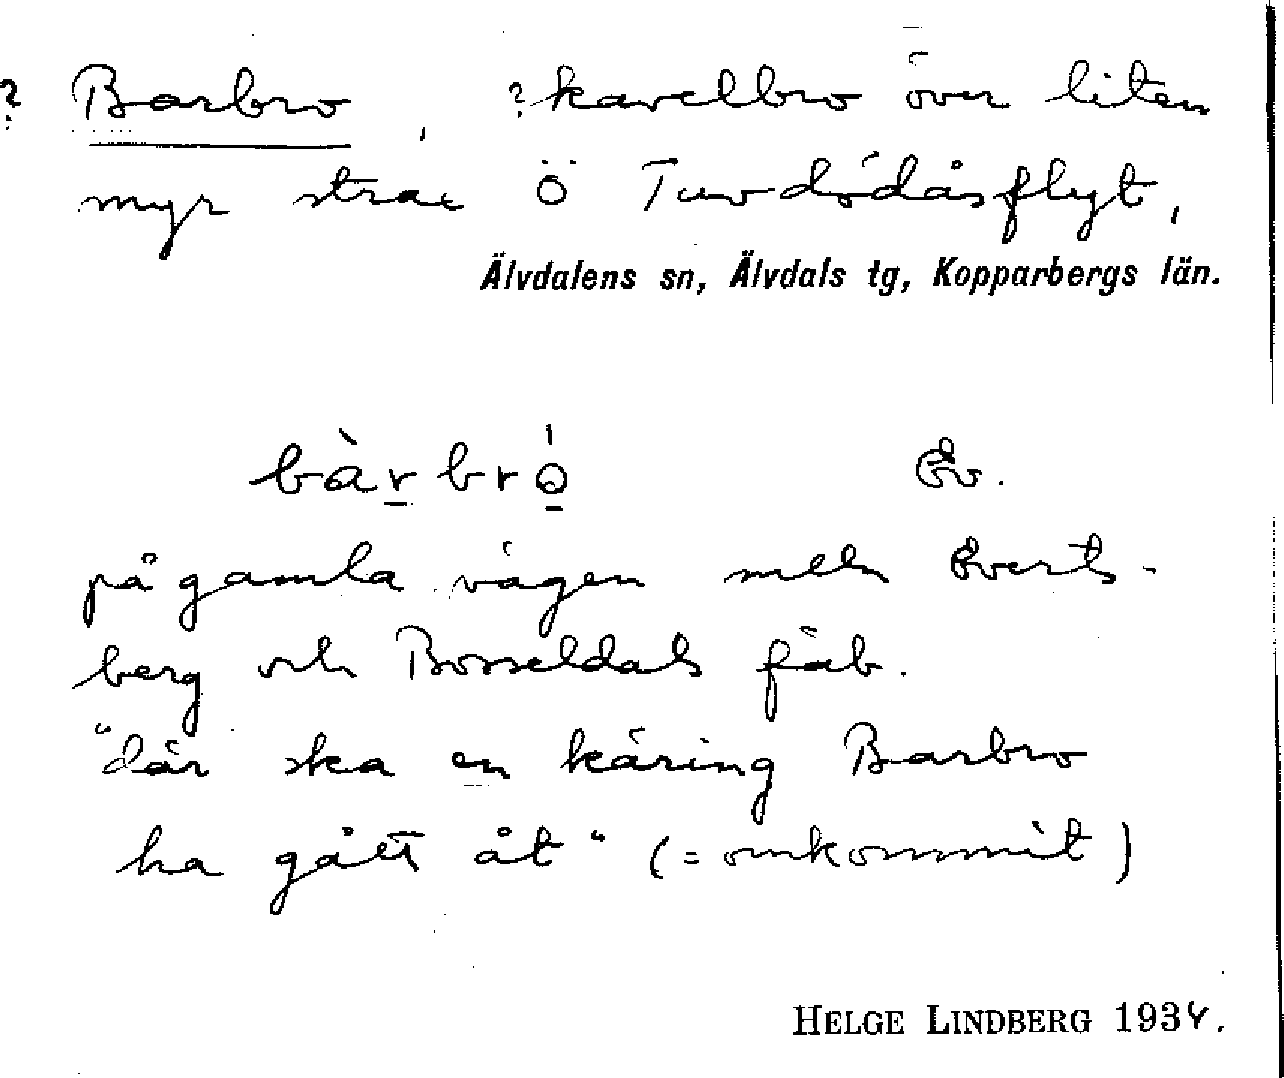 ? Barbro, ?kavelbro över liten
myr strax Ö Tuvdödåsflyt,
Älvdalens sn, Älvdals tg, Kopparbergs län.
bàrbró Ev.
på gamla vägen melln Everts-
berg och Bosseldals fäb.
"där ska en käring Barbro
ha gått åt" (= omkommit)
HELGE LINDBERG 1934.